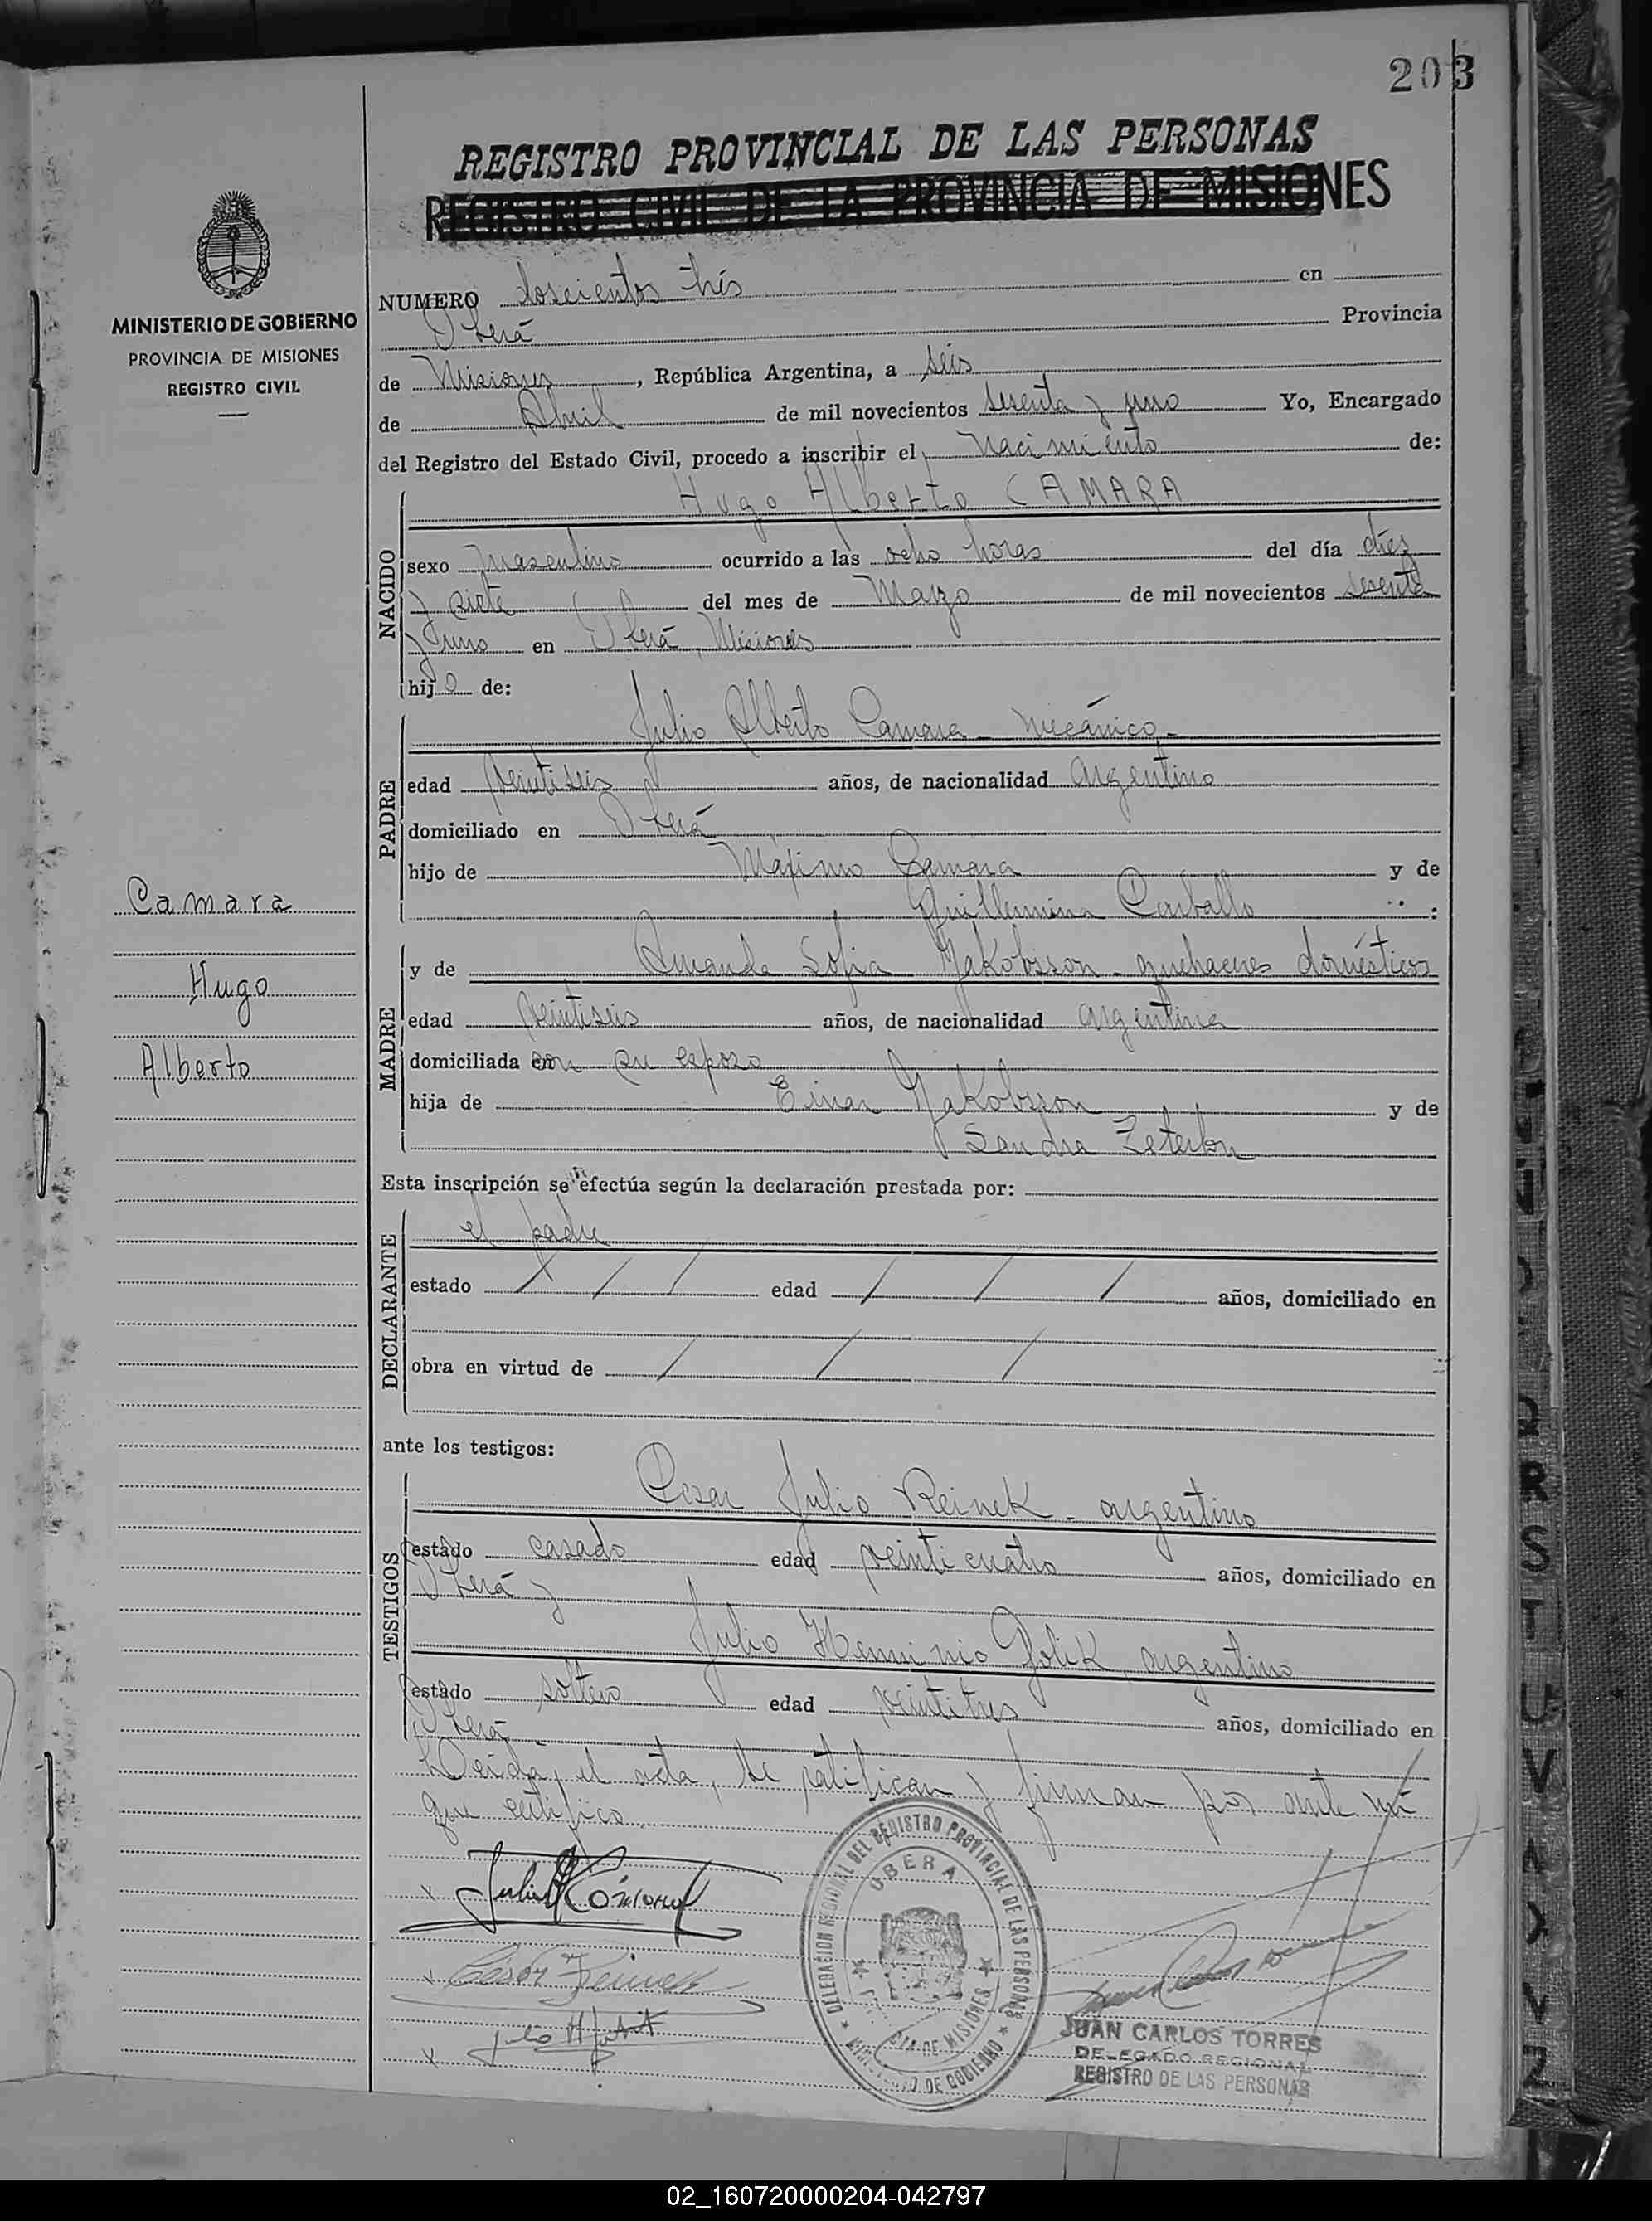 203
REGISTRO PROVINCIAL DE LAS PERSONAS
REGISTRO CIVIL DE LA PROVINCIA DE MISIONES
MINISTERIO DE GOBIERNO
PROVINCIA DE MISIONES
REGISTRO CIVIL
NUMERO doscientos trés en
Oberá Provincia
de Misiones, República Argentina, a seis
de Abril de mil novecientos sesenta y uno Yo, Encargado
del Registro del Estado Civil, procedo a inscribir el Nacimiento de:
Hugo Alberto CAMARA
NACIDO
sexo masculino ocurrido a las ocho horas del día diez
y siete del mes de Marzo de mil novecientos sesenta
y uno en Oberá, Misiones
hijo de:
Julio Alberto Camara - mecánico.-
PADRE
edad veintiseis años, de nacionalidad argentino
domiciliado en Oberá
hijo de Máximo Camara y de
Guillermina Carballo :
Camara
Hugo
Alberto
MADRE
y de Amanda Sofia Jakobsson - quehaceres domésticos
edad veintiseis años, de nacionalidad argentina
domiciliada con su esposo
hija de Einar Jakobsson y de
Sandra
Esta inscripción se efectúa según la declaración prestada por:
DECLARANTE
el padre
estado / / / edad / / / años, domiciliado en
obra en virtud de / / /
ante los testigos:
TESTIGOS
Cesar Julio Reinek - argentino
estado casado edad veinticuatro años, domiciliado en
Oberá y
Julio Herminio Golik, argentino
estado soltero edad veintitres años, domiciliado en
Oberá
Leída el acta, se ratifican y firman por ante mí
que certifico.
DELEGACION REGIONAL DEL REGISTRO PROVINCIAL DE LAS PERSONAS
OBERA
PROVINCIA DE MISIONES
MINISTERIO DE GOBIERNO
JUAN CARLOS TORRES
DELEGADO REGIONAL
REGISTRO DE LAS PERSONAS
R
S
T
U
V
02_160720000204-042797